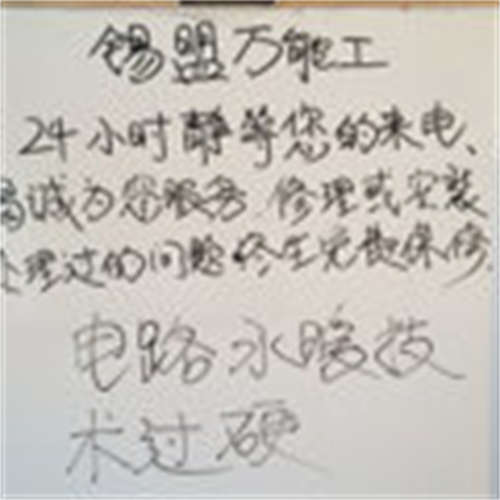 锡盟万能工
24小时静等您的来电、
竭诚为您服务.修理或安装
处理过的问题终生免费保修.
电路水暖技
术过硬